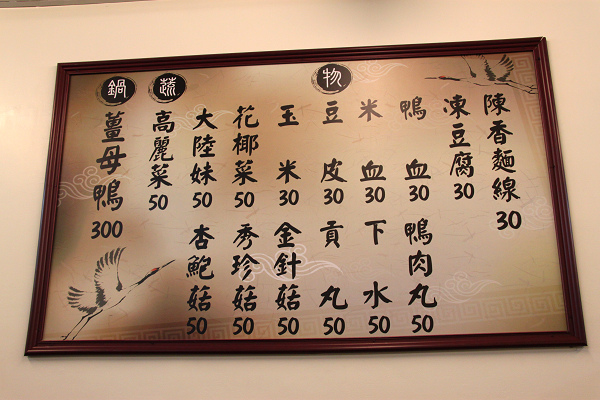 陳香麵線 30
凍豆腐 30
鴨血 30
鴨肉丸 50
米血 30
下水 50
物
豆皮 30
貢丸 50
玉米 30
金針菇 50
花椰菜 50
秀珍菇 50
大陸妹 50
杏鮑菇 50
蔬
高麗菜 50
鍋
薑母鴨 300